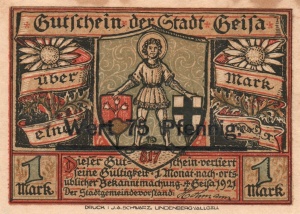 Gutschein der Stadt Geisa
über Mark
eine
Wert 75 Pfennig
817
1 Mark
1 Mark
Dieser Gut-schein verliert
seine Gültigkeit 1 Monat nach orts-
üblicher Bekanntmachung Geisa 1921
Der Stadtgemeindevorstand
DRUCK: J.A.SCHWARZ, LINDENBERG I/ALLGÄU